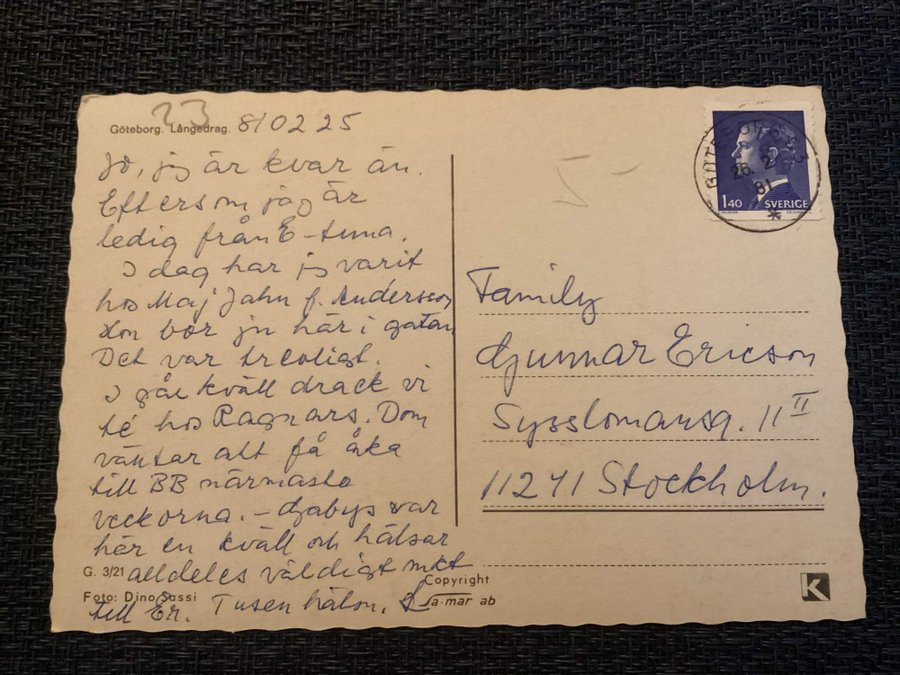 23
Göteborg. Långedrag. 810225
Jo, jag är kvar än.
Eftersom jag är
ledig från E-tuna.
I dag har jag varit
hos Maj Jahn f. Andersson
Hon bor ju här i gatan
Det var trevligt.
I går kväll drack vi
té hos Ragnars. Dom
väntar att få åka
till BB närmasta
veckorna. – Gabys var
här en kväll och hälsar
alldeles väldigt mkt
till Er. Tusen hälsn.
G. 3/21
Foto: Dino Sassi
Copyright
a-mar ab
5-
GÖTEBORG 3
26. 2
81
1.40 SVERIGE
Family
Gunnar Ericson
Sysslomansg. 11 II
11241 Stockholm.
K